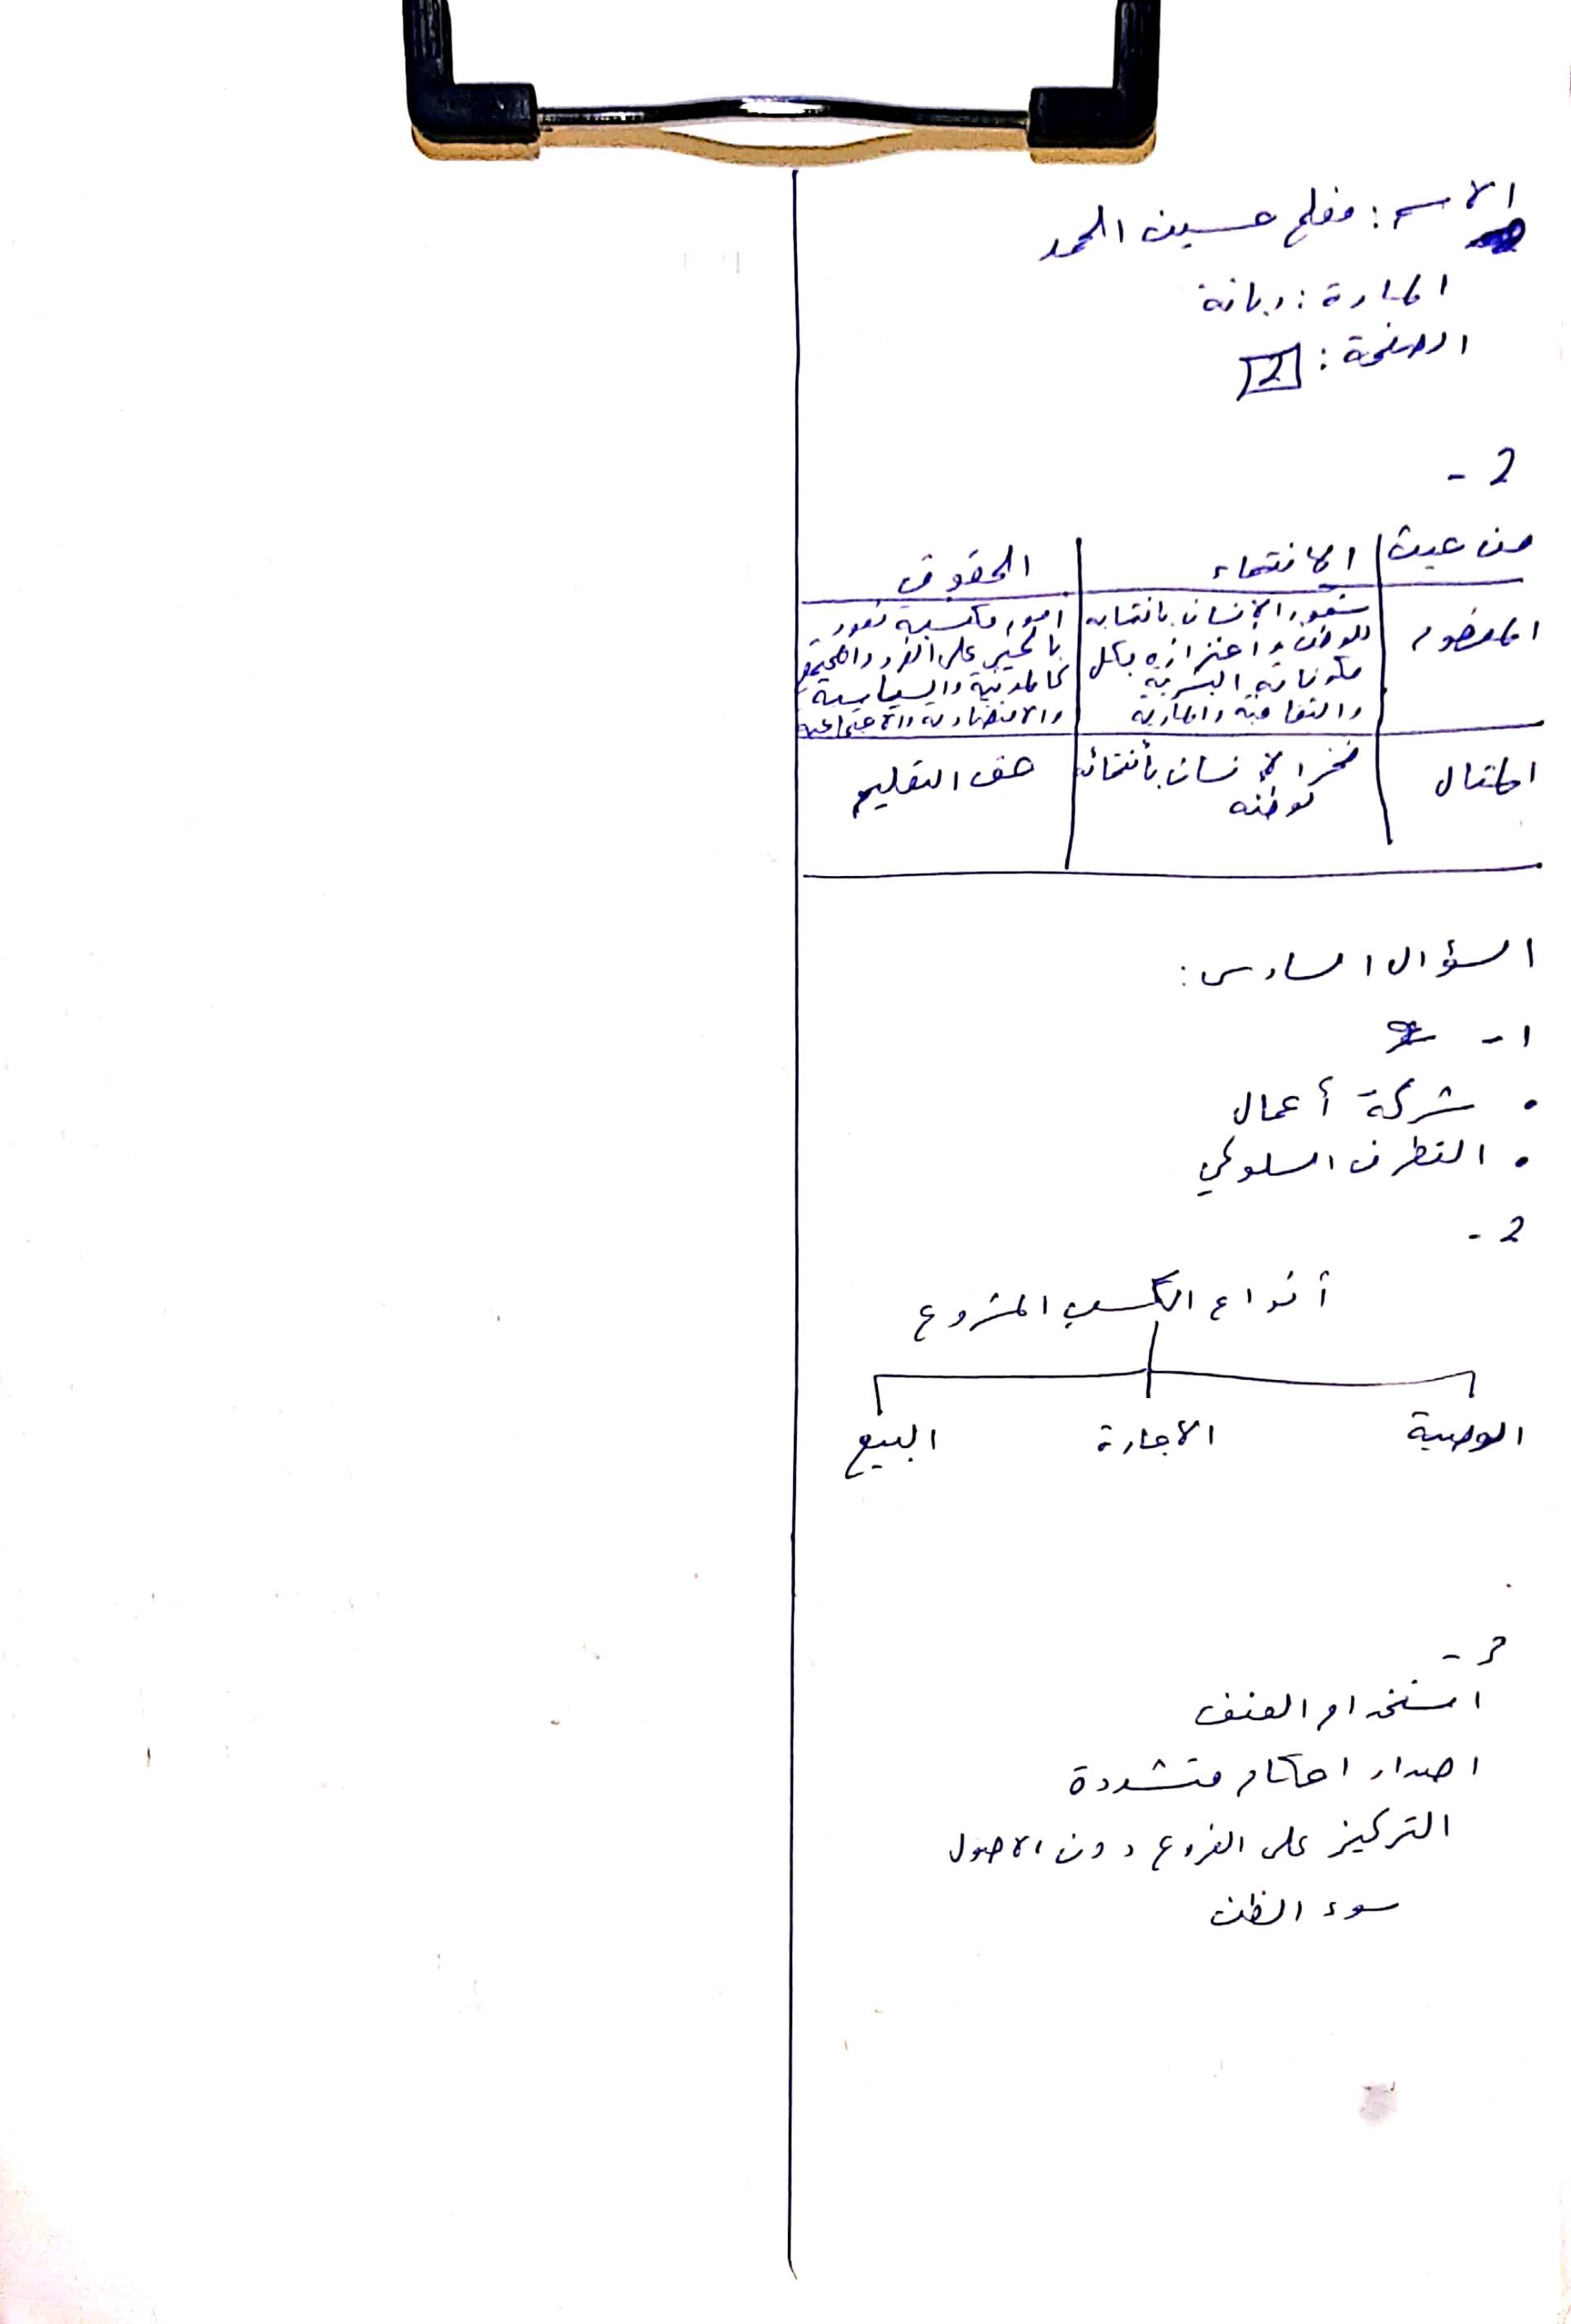 الاسم: مفلح حسين المحمد
المادة: ديانة
الصفحة: 2
2 -
من حيث | الانتماء | الحقوق
المفهوم | شعور الإنسان بانتمائه للوطن واعتزازه بكل مكوناته البشرية والثقافية والمادية | امور مكتسبة تعود بالخير على الفرد والمجتمع كالمدنية والسياسية والاقتصادية والاجتماعية
المثال | فخر الإنسان بأنتمائه لوطنه | حق التعليم
السؤال السادس:
1 -
• شركة أعمال
• التطرف السلوكي
2 -
أنواع الكسب المشروع
الوصية الاجارة البيع
3 -
استخدام العنف
اصدار احكام متشددة
التركيز على الفروع دون الاصول
سوء الظن